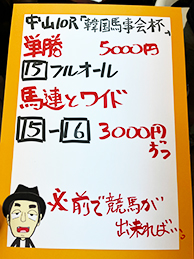 中山10R「韓国馬事会杯」
単勝 5000円
15フルオール
馬連とワイド
15-16 3000円
ずつ
必前で競馬が
出来れば…。